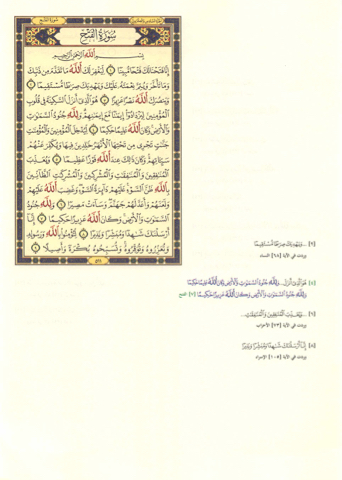 سُورَةُ الفَتْحِ
بِسْمِ اللَّهِ الرَّحْمَٰنِ الرَّحِيمِ
إِنَّا فَتَحْنَا لَكَ فَتْحًا مُّبِينًا ۝١ لِّيَغْفِرَ لَكَ اللَّهُ مَا تَقَدَّمَ مِن ذَنبِكَ
وَمَا تَأَخَّرَ وَيُتِمَّ نِعْمَتَهُۥ عَلَيْكَ وَيَهْدِيَكَ صِرَٰطًا مُّسْتَقِيمًا ۝٢
وَيَنصُرَكَ اللَّهُ نَصْرًا عَزِيزًا ۝٣ هُوَ الَّذِىٓ أَنزَلَ السَّكِينَةَ فِى قُلُوبِ
الْمُؤْمِنِينَ لِيَزْدَادُوٓا۟ إِيمَٰنًا مَّعَ إِيمَٰنِهِمْ وَلِلَّهِ جُنُودُ السَّمَٰوَٰتِ
وَالْأَرْضِ وَكَانَ اللَّهُ عَلِيمًا حَكِيمًا ۝٤ لِّيُدْخِلَ الْمُؤْمِنِينَ وَالْمُؤْمِنَٰتِ
جَنَّٰتٍ تَجْرِى مِن تَحْتِهَا الْأَنْهَٰرُ خَٰلِدِينَ فِيهَا وَيُكَفِّرَ عَنْهُمْ
سَيِّـَٔاتِهِمْ وَكَانَ ذَٰلِكَ عِندَ اللَّهِ فَوْزًا عَظِيمًا ۝٥ وَيُعَذِّبَ
الْمُنَٰفِقِينَ وَالْمُنَٰفِقَٰتِ وَالْمُشْرِكِينَ وَالْمُشْرِكَٰتِ الظَّآنِّينَ
بِاللَّهِ ظَنَّ السَّوْءِ عَلَيْهِمْ دَآئِرَةُ السَّوْءِ وَغَضِبَ اللَّهُ عَلَيْهِمْ
وَلَعَنَهُمْ وَأَعَدَّ لَهُمْ جَهَنَّمَ وَسَآءَتْ مَصِيرًا ۝٦ وَلِلَّهِ جُنُودُ
السَّمَٰوَٰتِ وَالْأَرْضِ وَكَانَ اللَّهُ عَزِيزًا حَكِيمًا ۝٧ إِنَّآ
أَرْسَلْنَٰكَ شَٰهِدًا وَمُبَشِّرًا وَنَذِيرًا ۝٨ لِّتُؤْمِنُوا۟ بِاللَّهِ وَرَسُولِهِۦ
وَتُعَزِّرُوهُ وَتُوَقِّرُوهُ وَتُسَبِّحُوهُ بُكْرَةً وَأَصِيلًا ۝٩
[٢] ... وَيَهْدِيَكَ صِرَٰطًا مُّسْتَقِيمًا
وردت في الآية [٦٨] النساء
[٤] هُوَ الَّذِىٓ أَنزَلَ ... وَلِلَّهِ جُنُودُ السَّمَٰوَٰتِ وَالْأَرْضِ وَكَانَ اللَّهُ عَلِيمًا حَكِيمًا
وَلِلَّهِ جُنُودُ السَّمَٰوَٰتِ وَالْأَرْضِ وَكَانَ اللَّهُ عَزِيزًا حَكِيمًا [٧] الفتح
[٦] وَيُعَذِّبَ الْمُنَٰفِقِينَ وَالْمُنَٰفِقَٰتِ ...
وردت في الآية [٧٣] الأحزاب
[٨] إِنَّآ أَرْسَلْنَٰكَ شَٰهِدًا وَمُبَشِّرًا وَنَذِيرًا
وردت في الآية [١٠٥] الإسراء